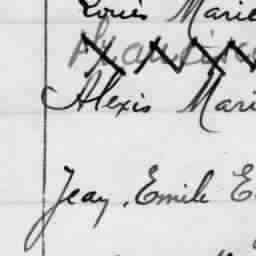 Louis Marie
Alexis Mari
Jean, Emile E